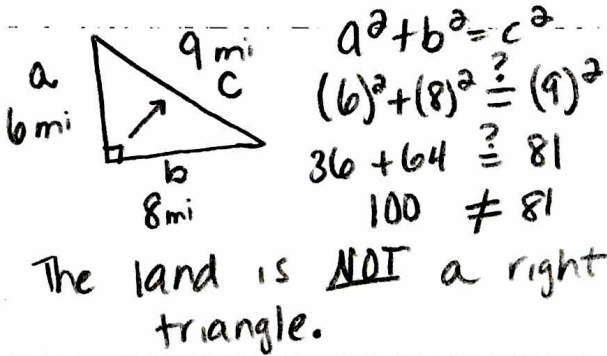 a
6 mi
9 mi
c
b
8 mi
a² + b² = c²
(6)² + (8)² ≟ (9)²
36 + 64 ≟ 81
100 ≠ 81
The land is NOT a right
triangle.